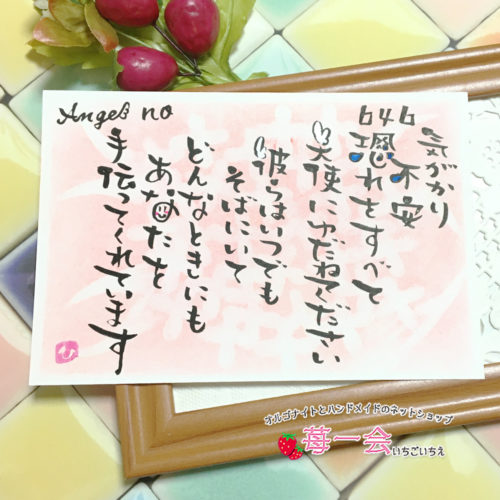 Angel no
646
気がかり
不安
恐れをすべて
天使にゆだねてください
彼らはいつでも
そばにいて
どんなときにも
あなたを
手伝ってくれています
ひ
オルゴナイトとハンドメイドのネットショップ
苺一会 いちごいちえ